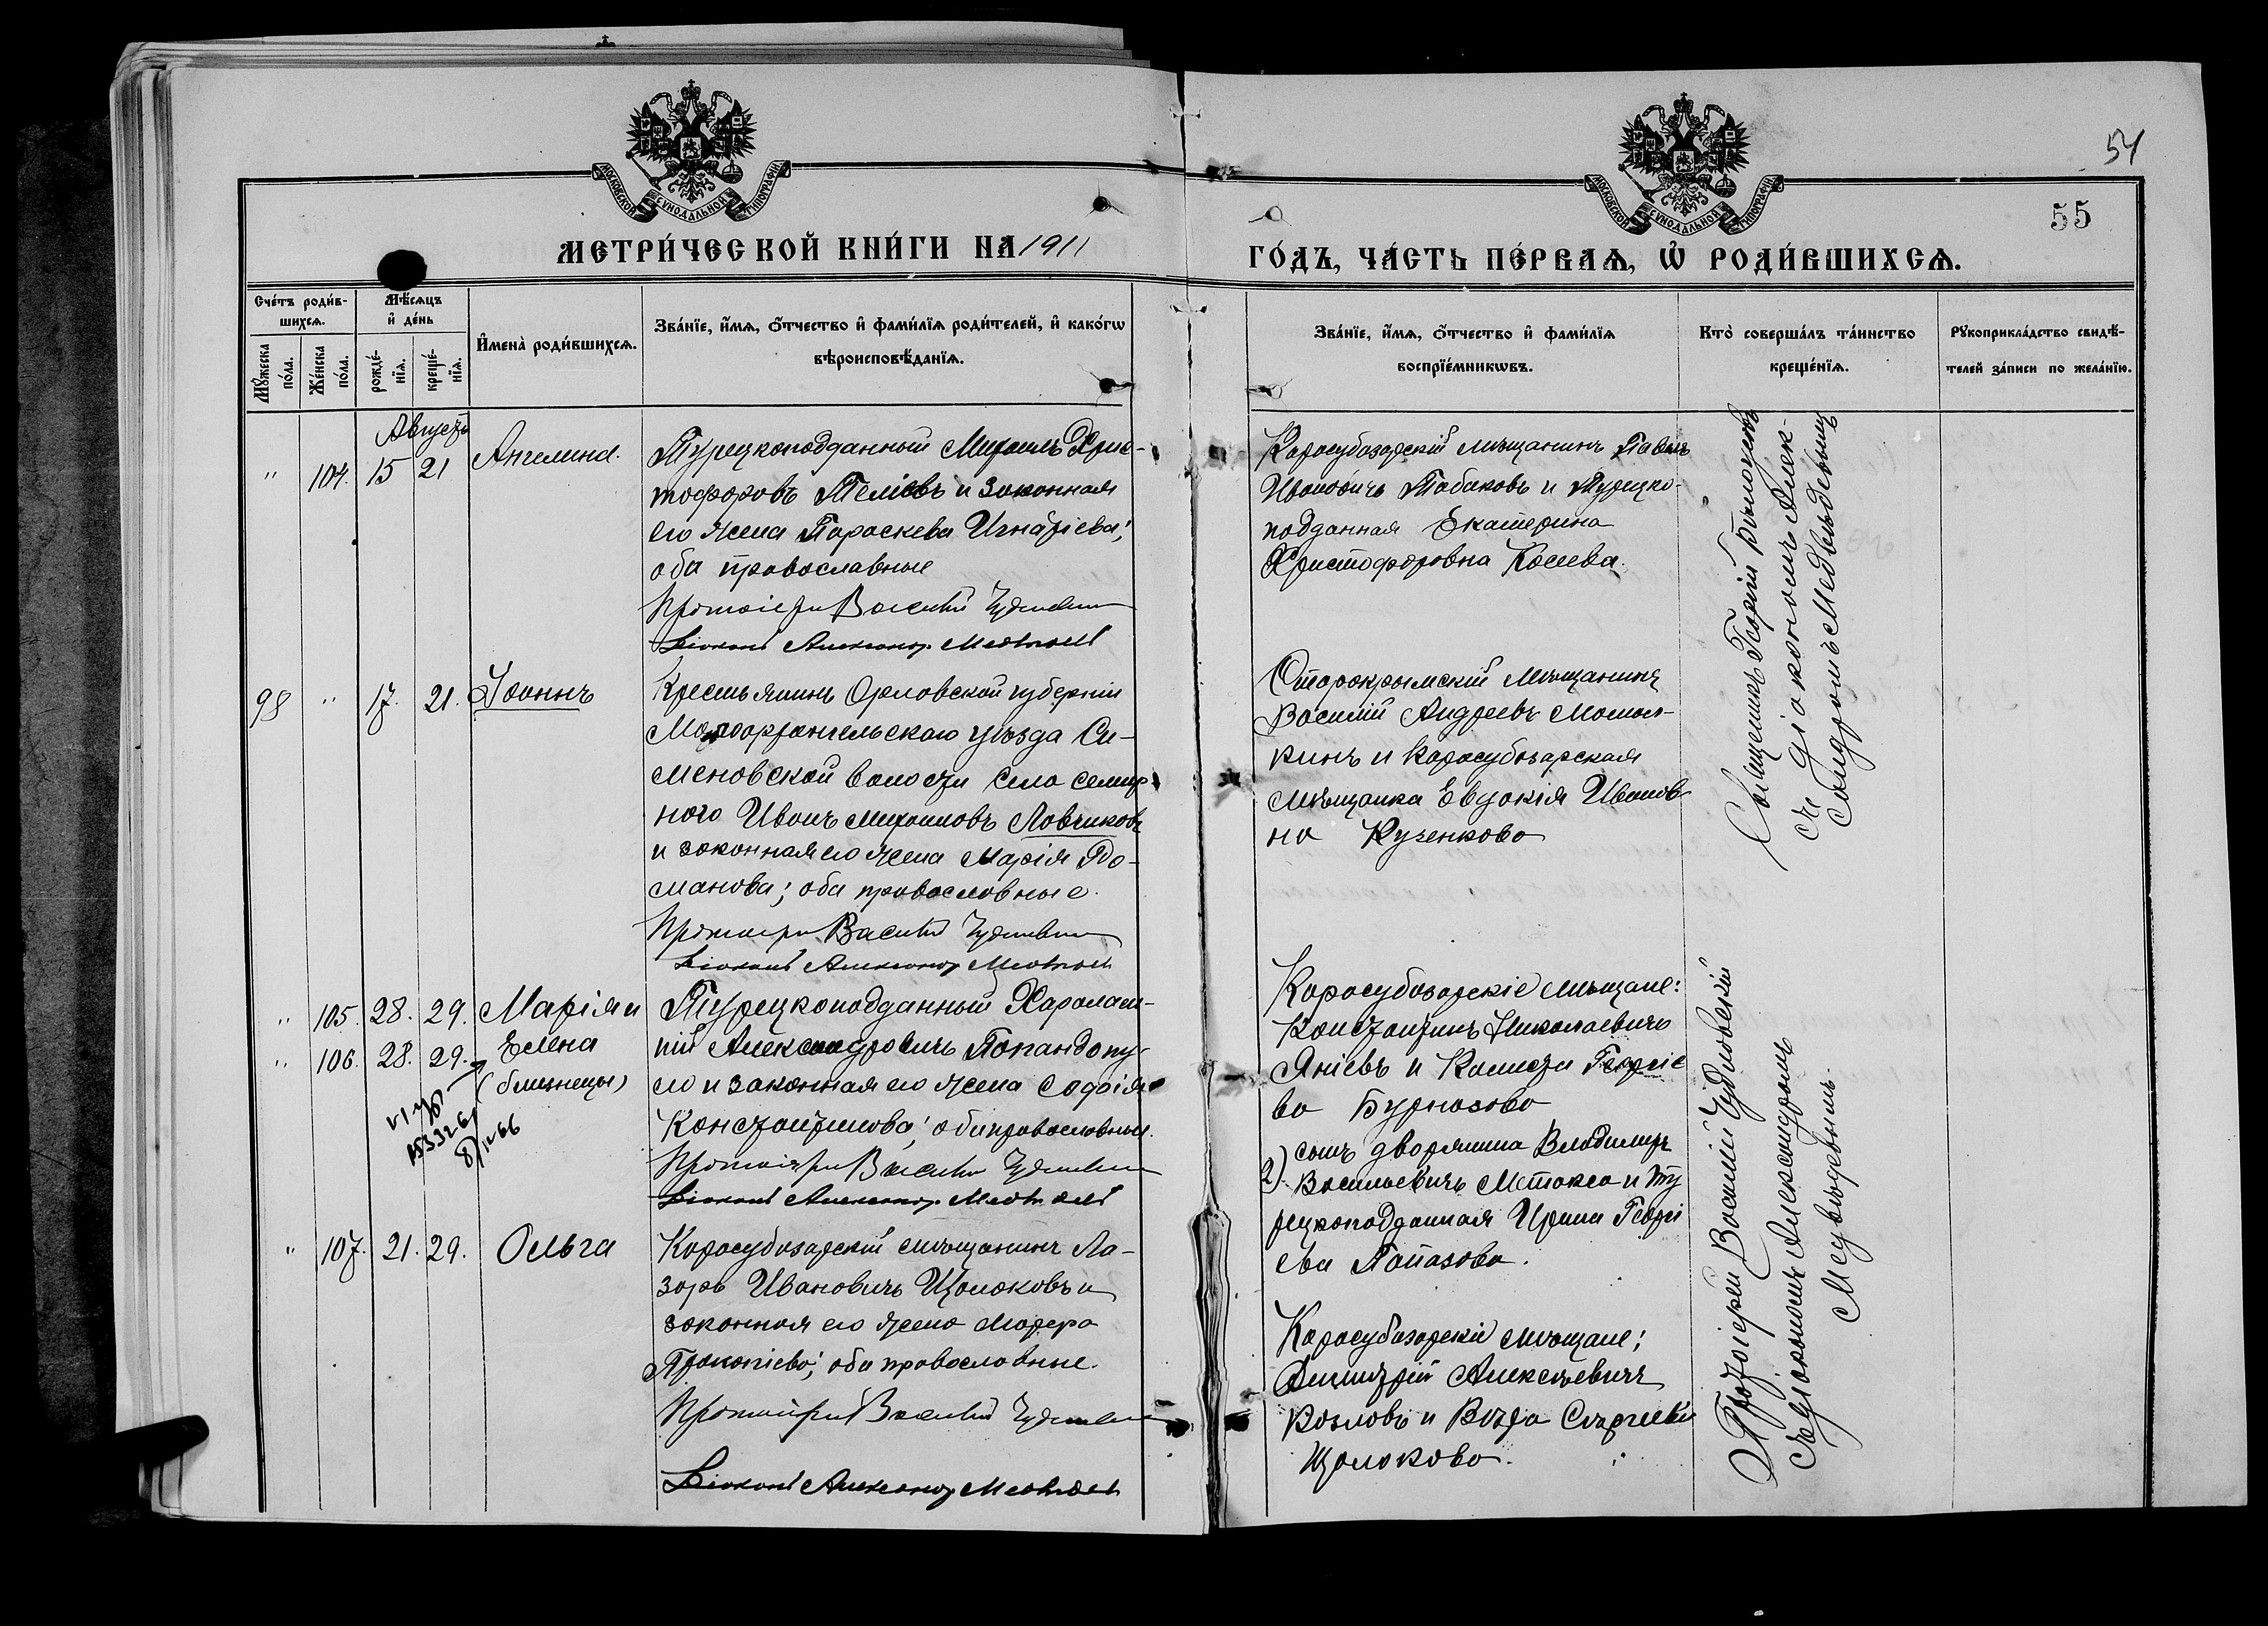 54
55
МОСКОВСКОЙ СѴНОДАЛЬНОЙ ТИПОГРАФІИ
МОСКОВСКОЙ СѴНОДАЛЬНОЙ ТИПОГРАФІИ
МЕТРИ́ЧЕСКОЙ КНИ́ГИ НА 1911
ГО́ДЪ, ЧА́СТЬ ПЕ́РВАѦ, Ѡ҆ РОДИ́ВШИХСѦ.
Сче́тъ роди́в-
шихсѧ.
Мꙋ́жеска по́ла.
Же́нска по́ла.
Мѣ́сѧцъ и҆ де́нь
рожде́-нїѧ.
креще́-нїѧ.
И҆мена̀ роди́вшихсѧ.
Зва́нїе, и҆́мѧ, о҆́тчество и҆ фами́лїѧ роди́телей, и҆ како́гѡ
вѣроисповѣ́данїѧ.
Зва́нїе, и҆́мѧ, о҆́тчество и҆ фами́лїѧ
воспрїе́мникѡвъ.
Кто̀ соверша́лъ та́инство
креще́нїѧ.
Рꙋкоприкла́дство свидѣ́-
телей за́писи по жела́нїю.
Августъ
" 104. 15 21 Ангелина.
Турецкоподданный Михаилъ Хрис-
тофоровъ Теліевъ и законная
его жена Параскева Игнатіева;
оба православные
Протоіерей Василій
Діаконъ Александр
Карасубазарскій мѣщанинъ Павелъ
Ивановичъ Табаковъ и Турецко-
подданная Екатерина
Христофоровна Косева.
Священникъ Георгій
съ діакономъ Алек-
сандромъ Медвѣдевымъ
98 " 17. 21. Іоаннъ
Крестьянинъ Орловской губерніи
Малоархангельскаго уѣзда Си-
меновской волости села
ного Иванъ Михаиловъ Ловчиковъ
и законная его жена Марія Ро-
манова; оба православные.
Протоіерей Василій
Діаконъ Александр
Старокрымскій мѣщанинъ
Василій Андреевъ
кинъ и Карасубазарская
мѣщанка Евдокія Иванов-
на Кузенкова
" 105. 28. 29. Марія и
" 106. 28. 29. Елена
(близнецы)
Турецкоподданный Харалам-
пій Александровичъ Попандопу-
ло и законная его жена Софія
Константинова; оба православные.
Протоіерей Василій
Діаконъ Александр
Карасубазарскіе мѣщане:
Константинъ Николаевичъ
Яніевъ и Георгіе
ва Бурназова
2) сынъ дворянина Владимиръ
Васильевичъ Метакса и Ту
рецкоподданная Ирина Георгі
ева Папазова.
Протоіерей Василій Чудновскій
съ діакономъ Александромъ
Медвѣдевымъ.
" 107. 21. 29. Ольга
Карасубазарскій мѣщанинъ Ла-
зарь Ивановичъ Щолоковъ и
законная его жена Марфа
Прокопіева; оба православные.
Протоіерей Василій
Діаконъ Александр
Карасубазарскіе мѣщане:
Димитрій Алексѣевичъ
Козловъ и Вѣра Сергѣева
Щолокова.